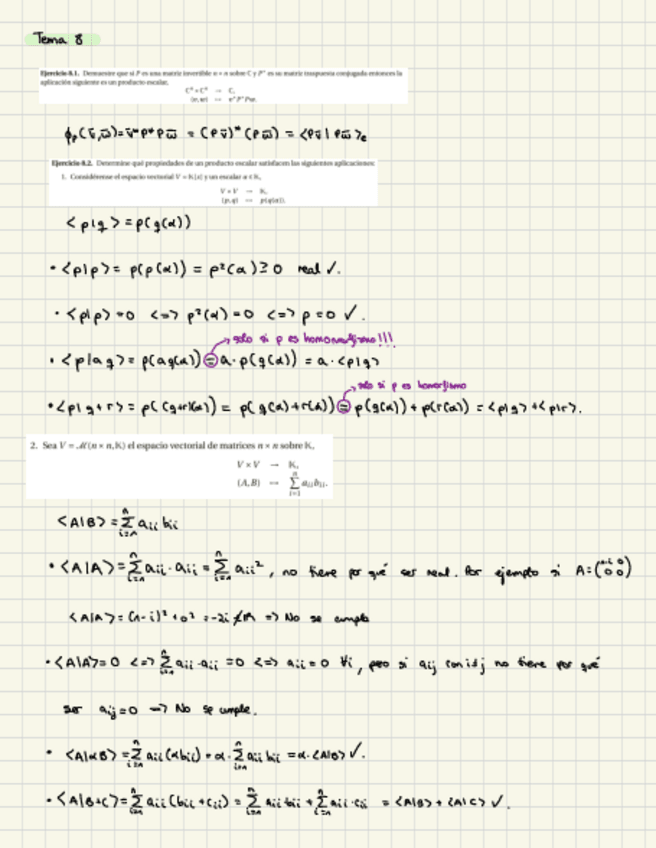 Tema 8
Ejercicio 8.1. Demuestre que si P es una matriz invertible n × n sobre C y P* es su matriz traspuesta conjugada entonces la
aplicación siguiente es un producto escalar,
Cⁿ × Cⁿ → C,
(v, w) ↦ v*P*Pw.
ϕ_P(v̄, w̄) = v̄* P* P w̄ = (P v̄)* (P w̄) = <P v̄ | P w̄>_e
Ejercicio 8.2. Determine qué propiedades de un producto escalar satisfacen las siguientes aplicaciones:
1. Considérense el espacio vectorial V = K[x] y un escalar α ∈ K,
V × V → K,
(p, q) ↦ p(q(α)).
<p|q> = p(q(α))
• <p|p> = p(p(α)) = p²(α) ≥ 0 real ✓.
• <p|p> = 0 <=> p²(α) = 0 <=> p = 0 ✓.
solo si p es homomorfismo!!!
• <p|aq> = p(aq(α)) = a · p(q(α)) = a · <p|q>
solo si p es homorfismo
• <p|q+r> = p((q+r)(α)) = p(q(α)+r(α)) = p(q(α)) + p(r(α)) = <p|q> + <p|r>.
2. Sea V = M(n × n, K) el espacio vectorial de matrices n × n sobre K,
V × V → K,
(A, B) ↦ ∑ᵢ₌₁ⁿ aᵢᵢbᵢᵢ.
<A|B> = ∑ᵢ₌₁ⁿ aᵢᵢ bᵢᵢ
• <A|A> = ∑ᵢ₌₁ⁿ aᵢᵢ · aᵢᵢ = ∑ᵢ₌₁ⁿ aᵢᵢ², no tiene por qué ser real. Por ejemplo si A = (1-i 0 0 0)
<A|A> = (1-i)² + 0² = -2i ∉ R => No se cumple
• <A|A> = 0 <=> ∑ᵢ₌₁ⁿ aᵢᵢ · aᵢᵢ = 0 <=> aᵢᵢ = 0 ∀i, pero si aᵢⱼ con i≠j no tiene por qué
ser aᵢⱼ = 0 => No se cumple.
• <A|αB> = ∑ᵢ₌₁ⁿ aᵢᵢ(αbᵢᵢ) = α · ∑ᵢ₌₁ⁿ aᵢᵢ bᵢᵢ = α · <A|B> ✓.
• <A|B+C> = ∑ᵢ₌₁ⁿ aᵢᵢ(bᵢᵢ + cᵢᵢ) = ∑ᵢ₌₁ⁿ aᵢᵢ bᵢᵢ + ∑ᵢ₌₁ⁿ aᵢᵢ · cᵢᵢ = <A|B> + <A|C> ✓.